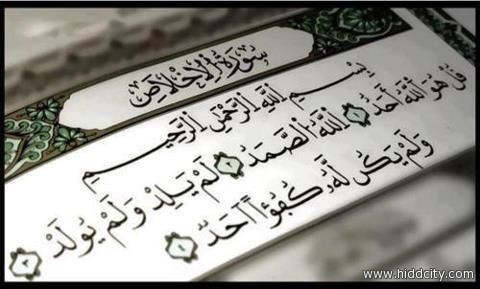 سُورَةُ الإِخْلَاصِ
بِسْمِ اللَّهِ الرَّحْمَٰنِ الرَّحِيمِ
قُلْ هُوَ اللَّهُ أَحَدٌ ۝١ اللَّهُ الصَّمَدُ ۝٢ لَمْ يَلِدْ وَلَمْ يُولَدْ ۝٣
وَلَمْ يَكُن لَّهُ كُفُوًا أَحَدٌ ۝٤
www.hiddcity.com